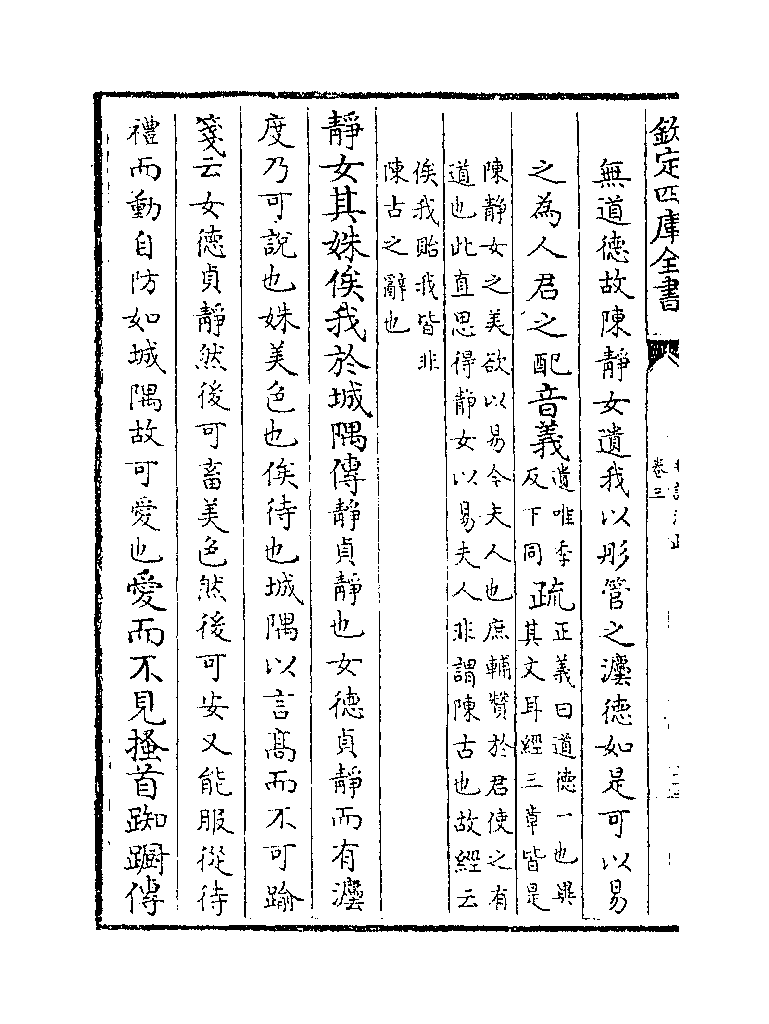 欽定四庫全書
卷三
無道德故陳靜女遺我以彤管之灋德如是可以易
之為人君之配音義遺唯季反下同疏正義曰道德一也異其文耳經三章皆是
陳靜女之美欲以易今夫人也庶輔贊於君使之有
道也此直思得靜女以易夫人非謂陳古也故經云
俟我貽我皆非
陳古之辭也
靜女其姝俟我於城隅傳靜貞靜也女德貞靜而有灋
度乃可說也姝美色也俟待也城隅以言髙而不可踰
箋云女徳貞靜然後可畜美色然後可安又能服從待
禮而動自防如城隅故可愛也愛而不見搔首踟躕傳